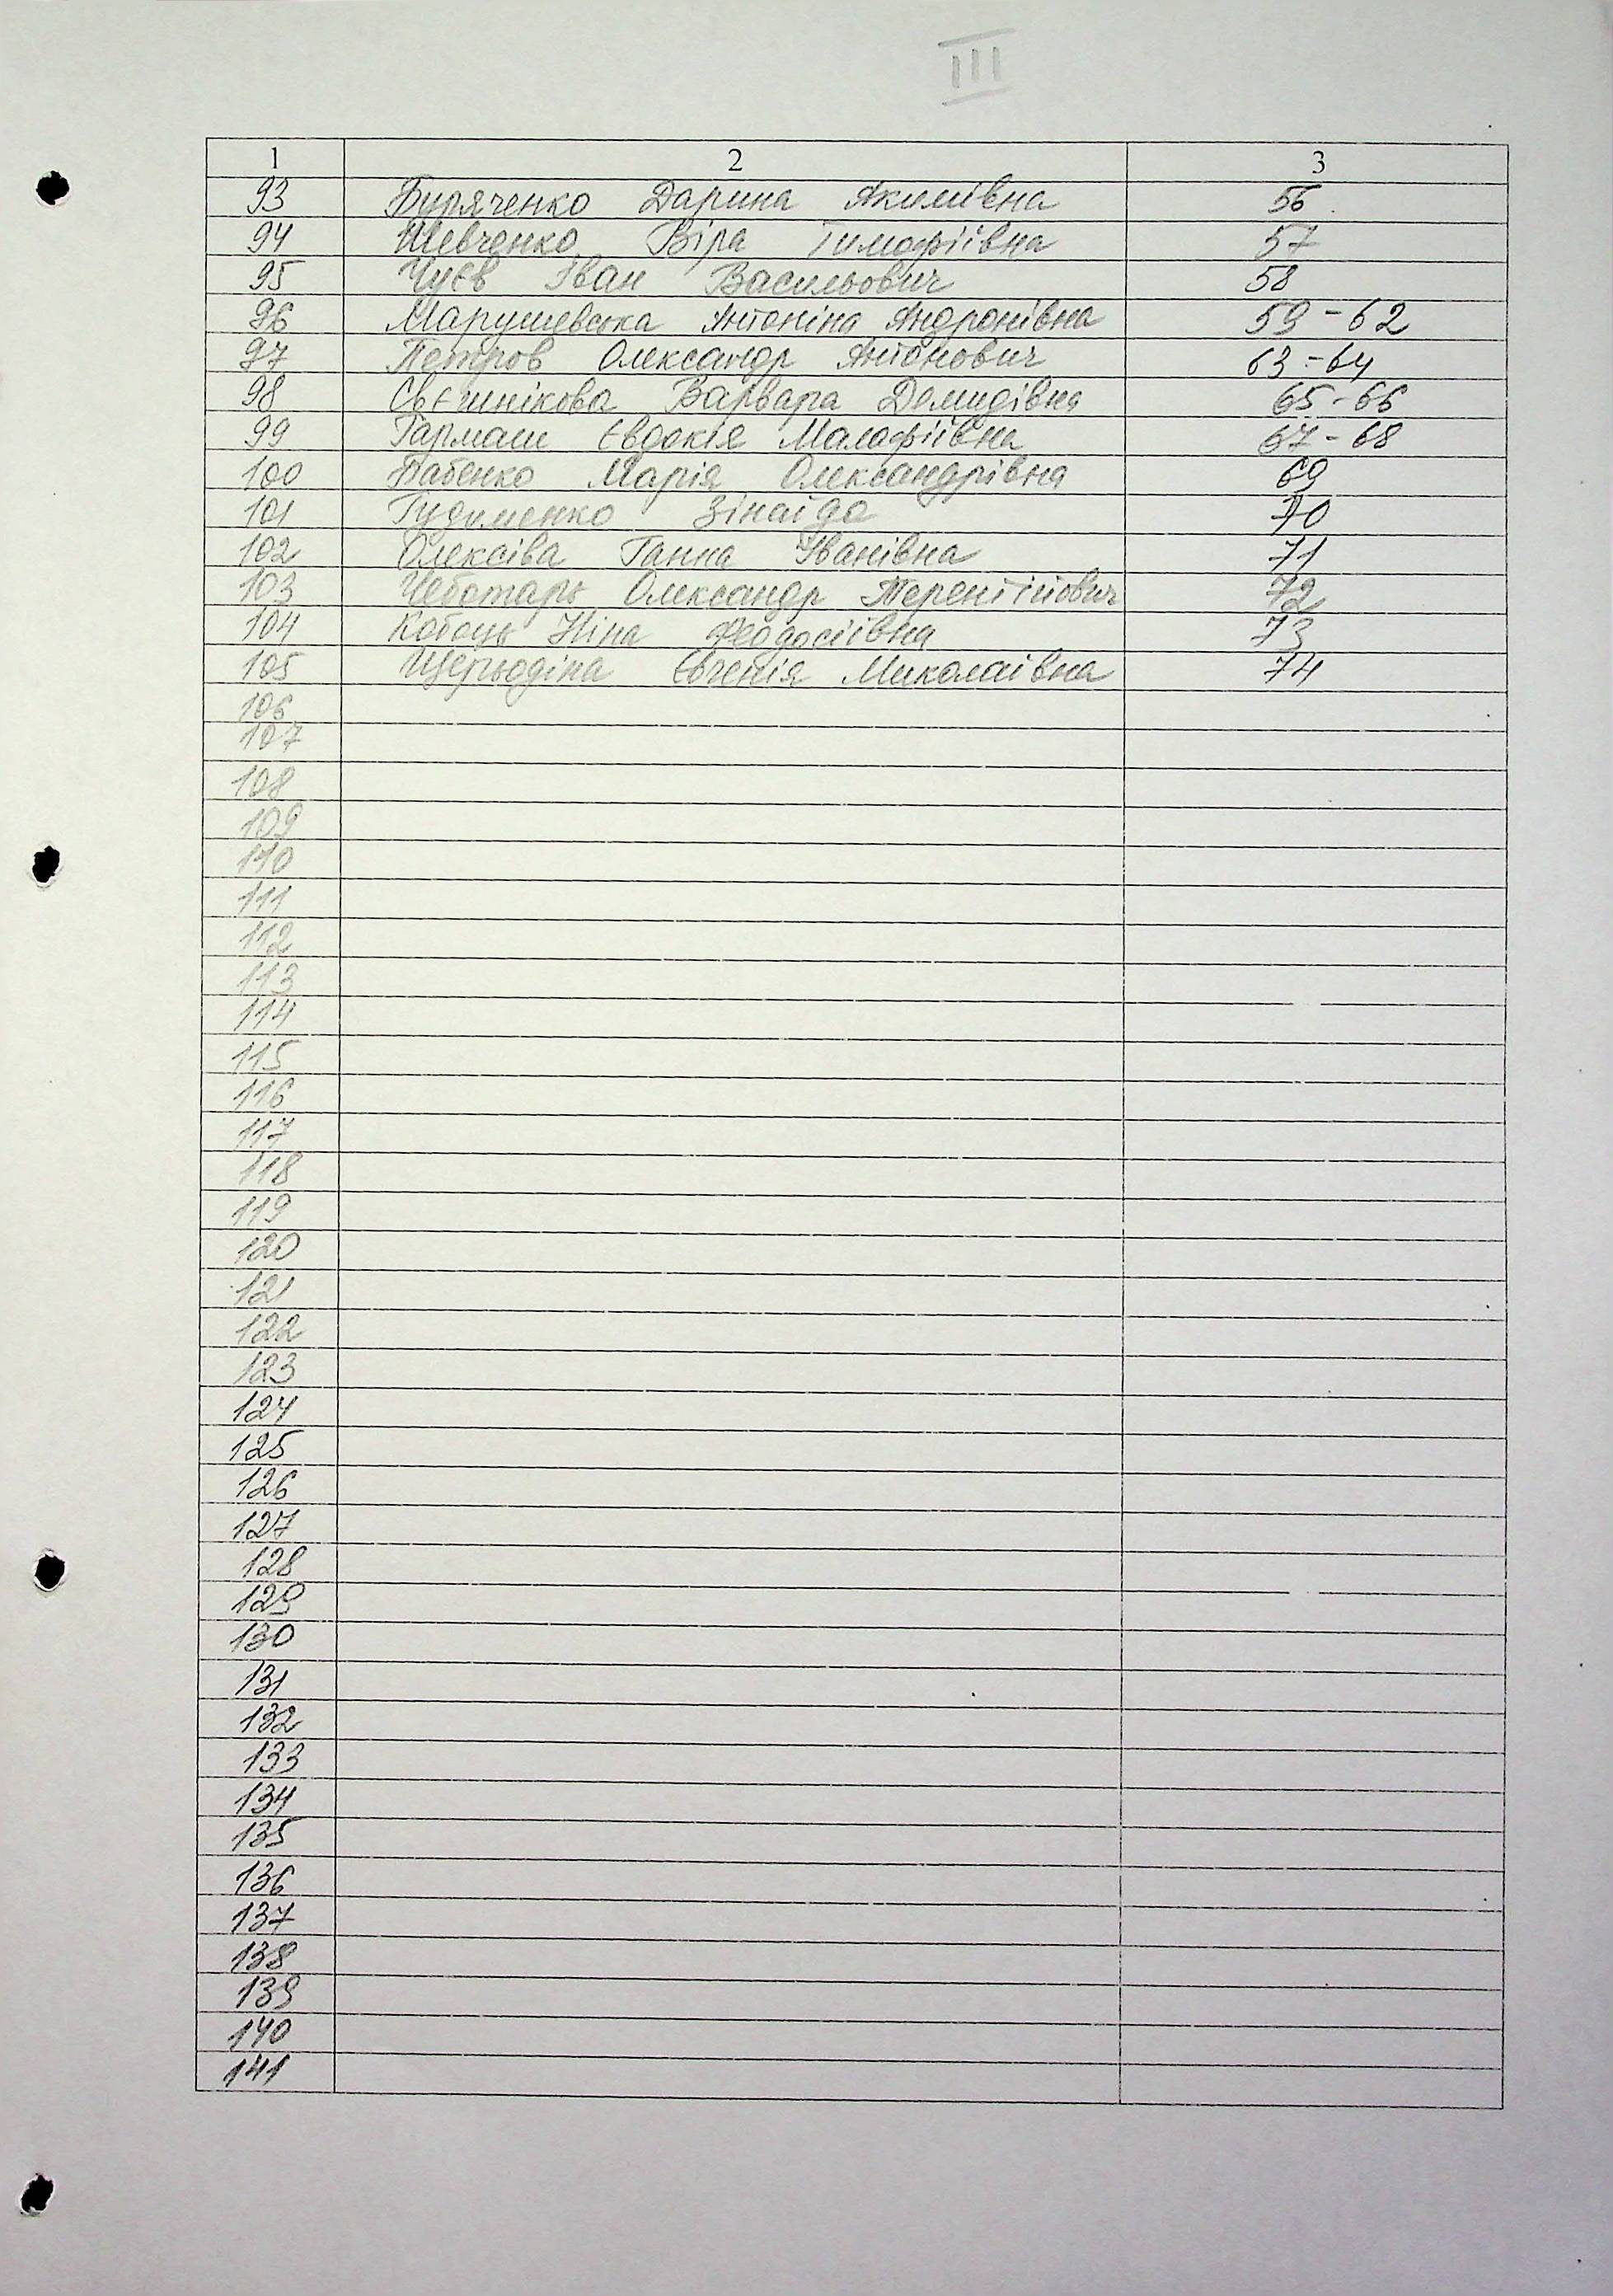 III
1 2 3
93 Буряченко Дарина Якимівна 56
94 Шевченко Віра Тимофіївна 57
95 Чуєв Іван Васильович 58
96 Марушевська Антоніна Андронівна 59-62
97 Петров Олександр Антонович 63-64
98 Свєшнікова Варвара Демидівна 65-66
99 Гармаш Євдокія Малофіївна 67-68
100 Бабенко Марія Олександрівна 69
101 Гудименко Зінаїда 70
102 Олексіва Ганна Іванівна 71
103 Чеботарь Олександр Терентійович 72
104 Ніна Феодосіївна 73
105 Євгенія Миколаївна 74
106
107
108
109
110
111
112
113
114
115
116
117
118
119
120
121
122
123
124
125
126
127
128
129
130
131
132
133
134
135
136
137
138
139
140
141